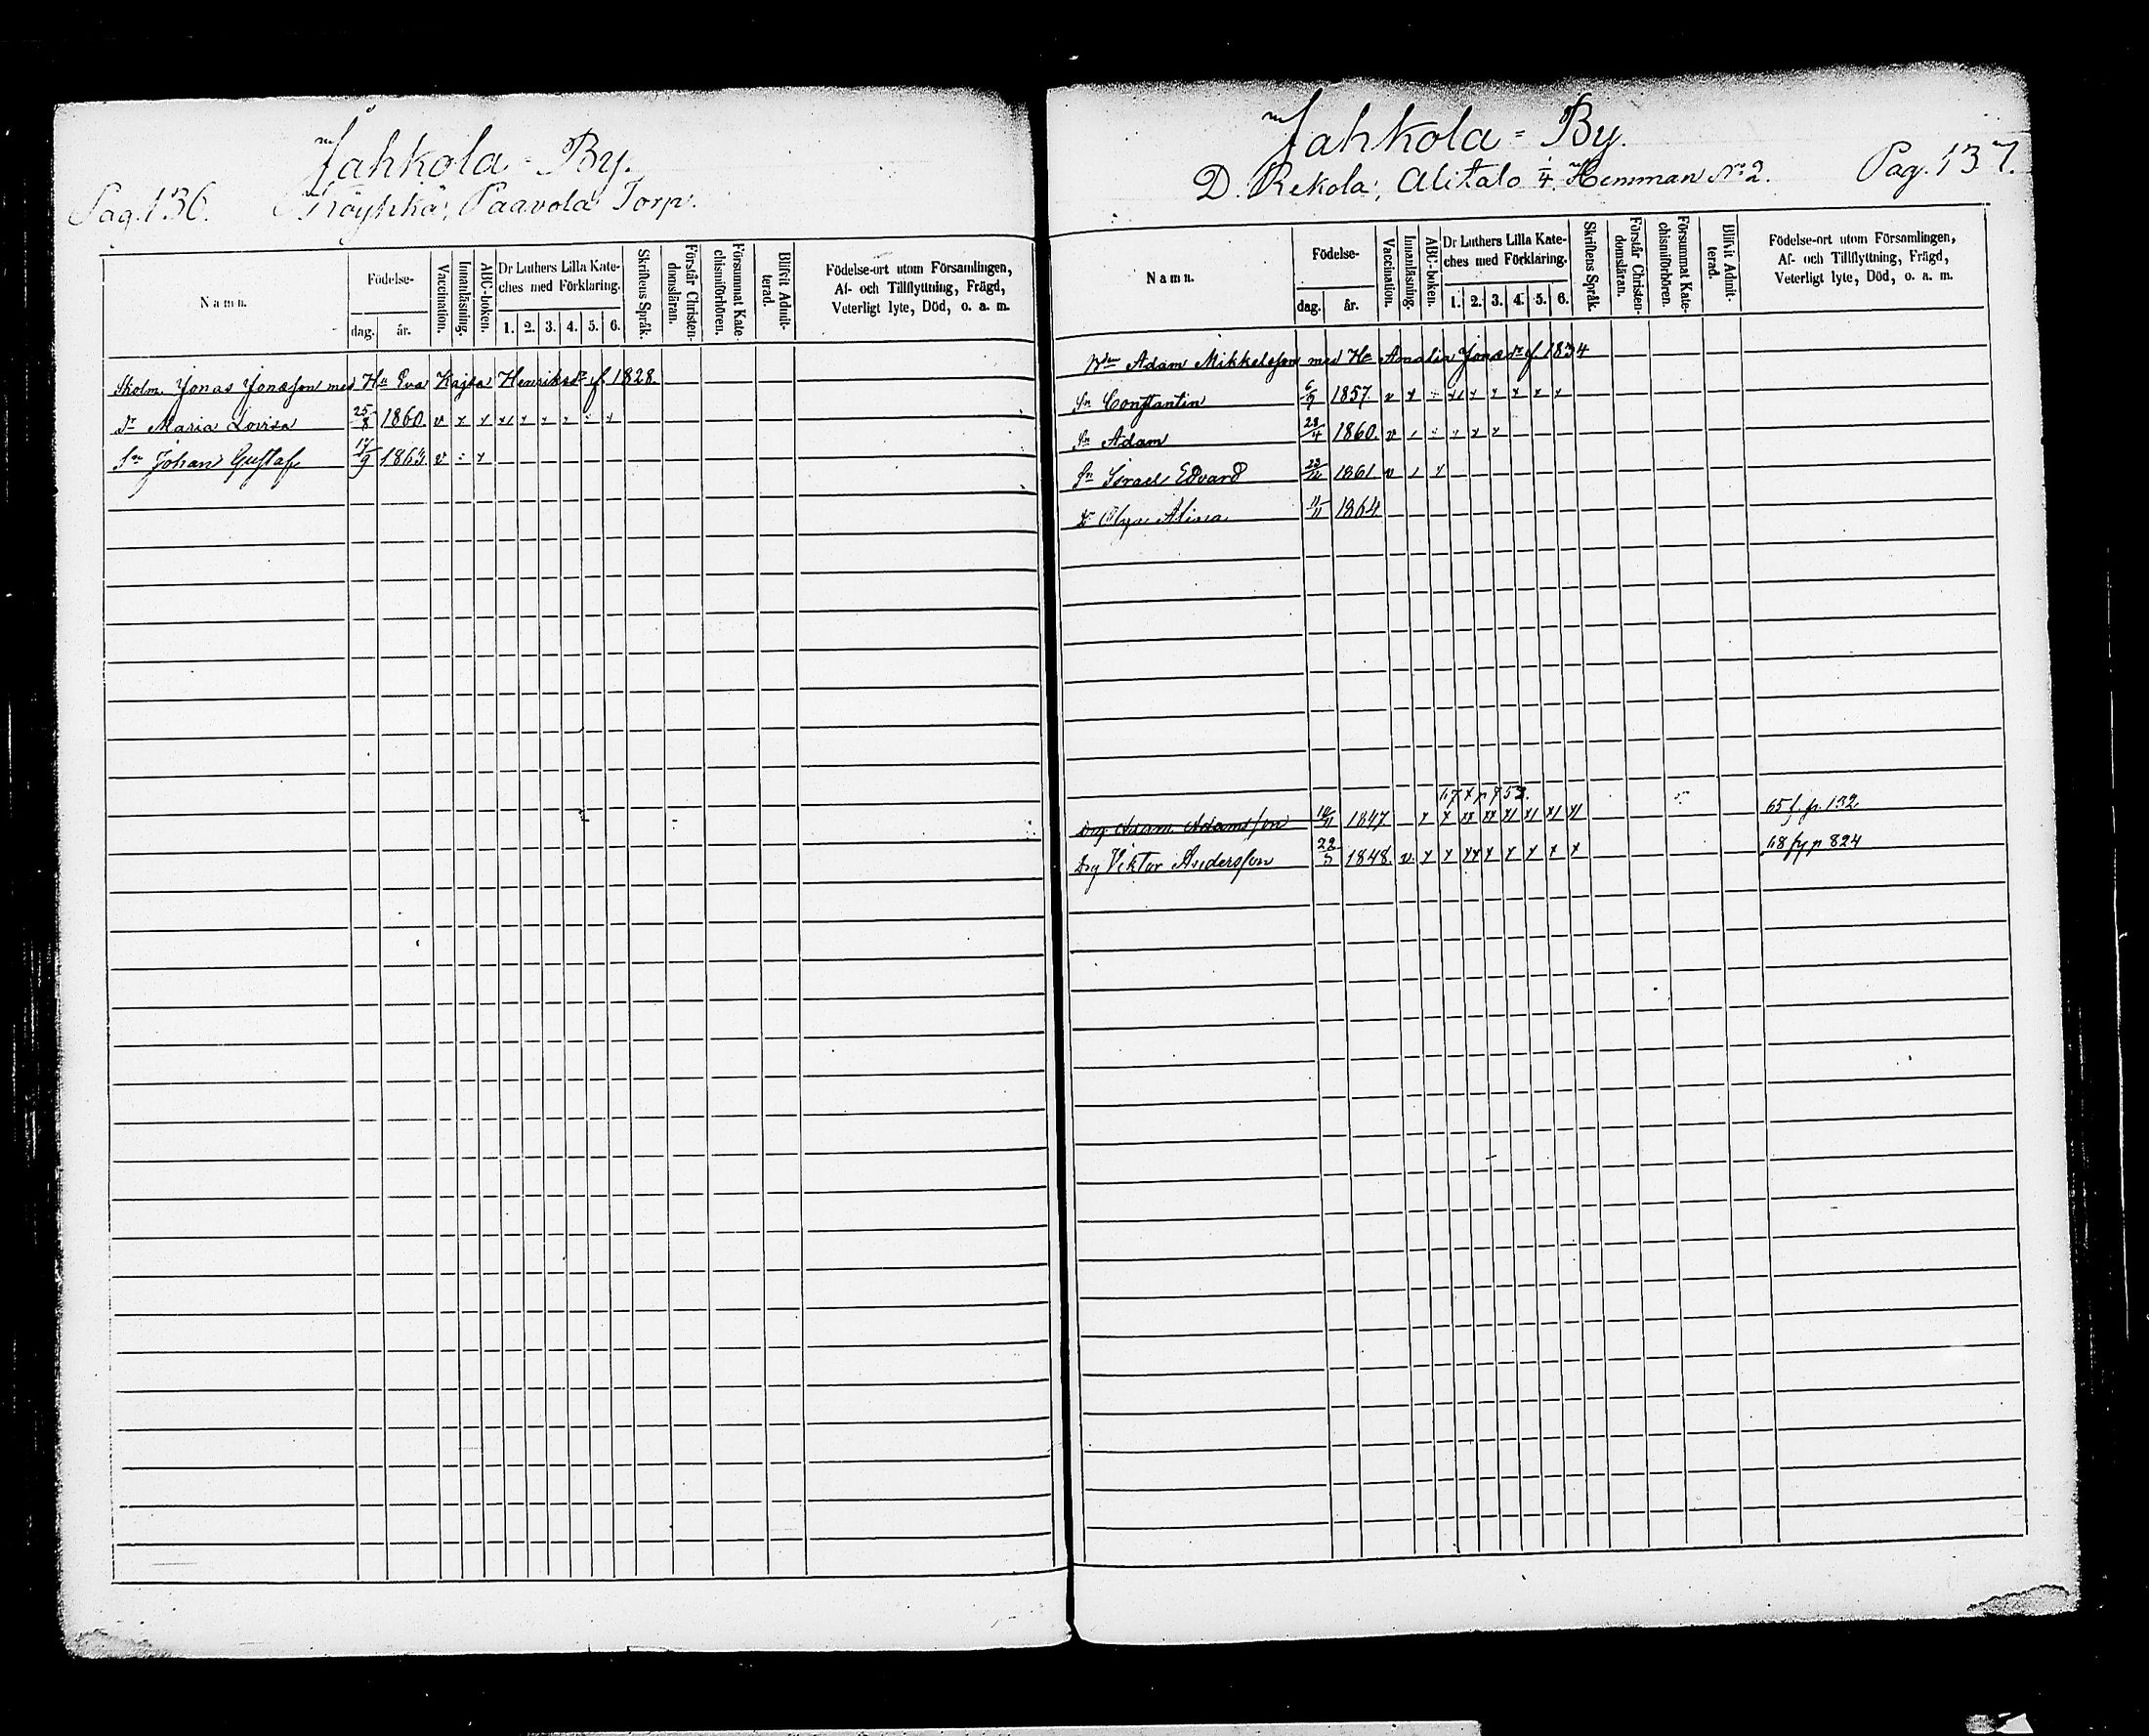 Jahkola - By.
Pag. 136. Köyhkä, Paavola Torp.
Namn.
Födelse-
dag. år.
Vaccination.
Innanläsning.
ABC-boken.
Dr Luthers Lilla Kate-
ches med Förklaring.
1. 2. 3. 4. 5. 6.
Skriftens Språk.
Förstår Christen-
domsläran.
Försummat Kate-
chismiförhören.
Blifvit Admit-
terad.
Födelse-ort utom Församlingen,
Af- och Tillflyttning, Frägd,
Veterligt lyte, Död, o. a. m.
Skolm. Jonas Jonasson med Hu Eva Kajsa Henriksdr f. 1828.
Dr Maria Lovisa 25/8 1860. v
Sn Johan Gustaf 17/9 1863. v
Jahkola = By.
D. Rekola, Alitalo 1/4 Hemman No 2. Pag. 137.
Namn.
Födelse-
dag. år.
Vaccination.
Innanläsning.
ABC-boken.
Dr Luthers Lilla Kate-
ches med Förklaring.
1. 2. 3. 4. 5. 6.
Skriftens Språk.
Förstår Christen-
domsläran.
Försummat Kate-
chismiförhören.
Blifvit Admit-
terad.
Födelse-ort utom Församlingen,
Af- och Tillflyttning, Frägd,
Veterligt lyte, Död, o. a. m.
Adam Mikkelsson med Hu Amalia Jonasdr f. 1834
Sn Constantin 6/9 1857. v
Sn Adam 28/4 1860. v
Sn Israel Edvard 1861. v
Dr Alina 11/11 1864
Drg Adam Adamsson 1847 65 f. p. 132
Drg Viktor Andersson 22/3 1848. v. 68 p 824